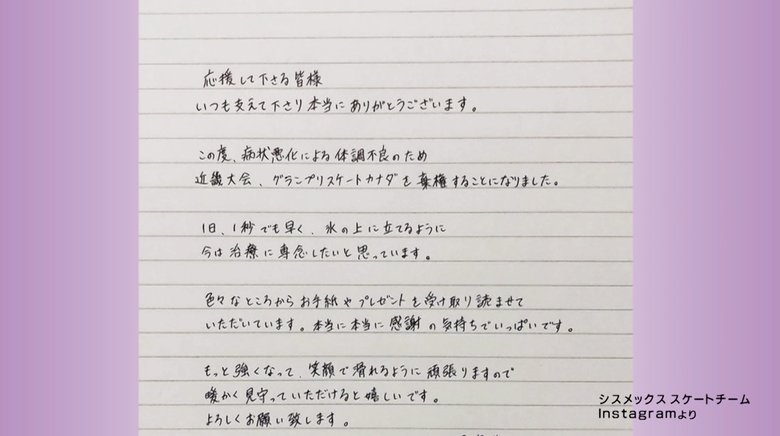 応援して下さる皆様
いつも支えて下さり本当にありがとうございます。
この度、病状悪化による体調不良のため
近畿大会、グランプリスケートカナダを棄権することになりました。
1日、1秒でも早く、氷の上に立てるように
今は治療に専念したいと思っています。
色々なところからお手紙やプレゼントを受け取り読ませて
いただいています。本当に本当に感謝の気持ちでいっぱいです。
もっと強くなって、笑顔で滑れるように頑張りますので
暖かく見守っていただけると嬉しいです。
よろしくお願い致します。
シスメックス スケートチーム
Instagramより